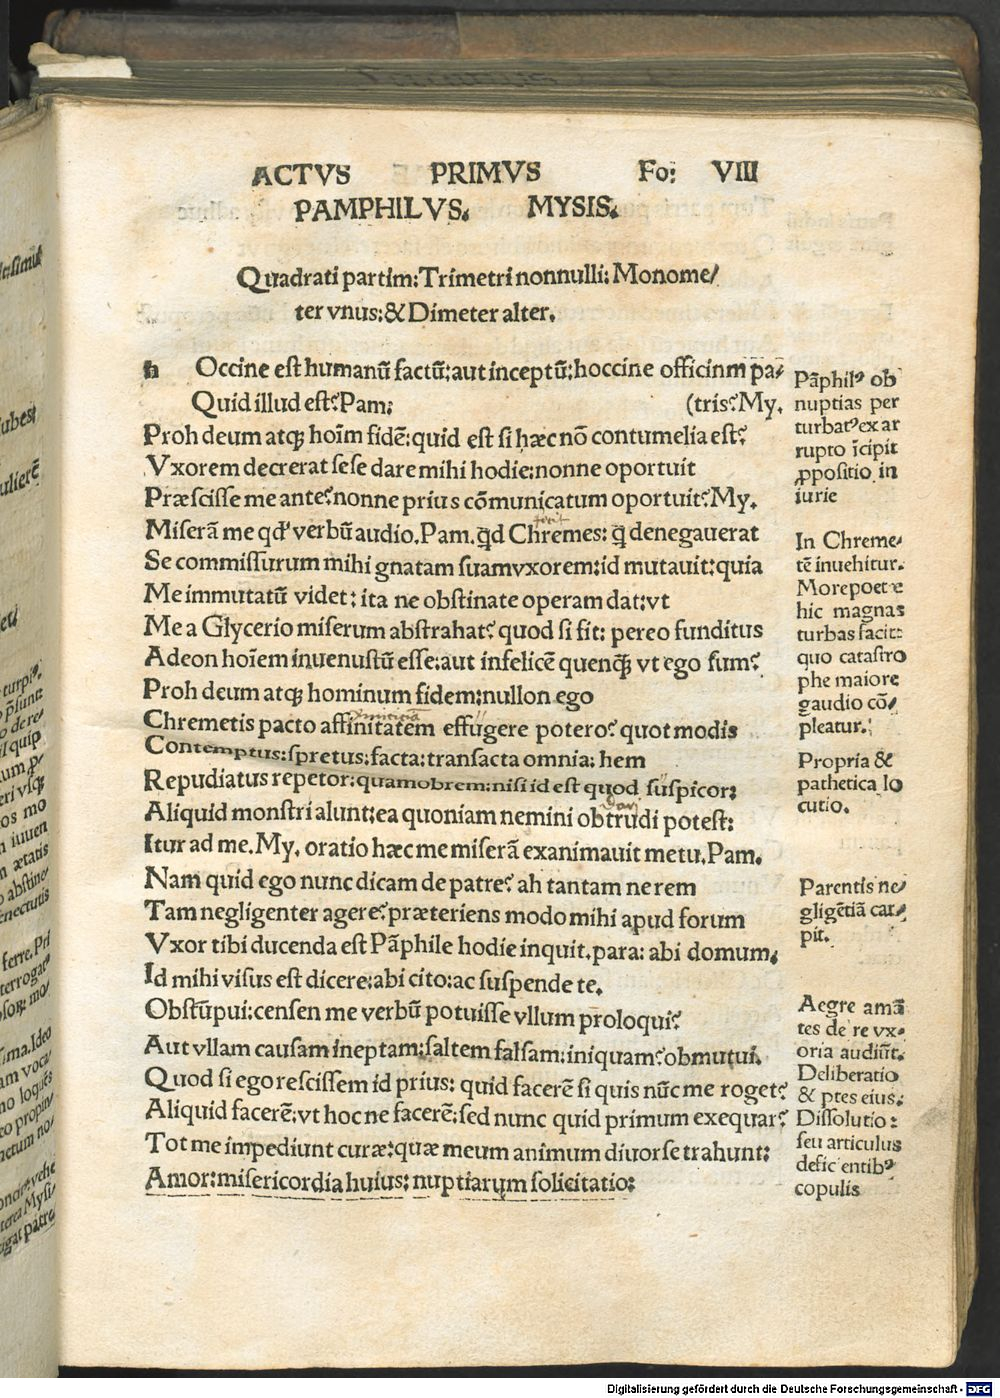 ACTVS PRIMVS Fo: VIII
PAMPHILVS. MYSIS.
Quadrati partim: Trimetri nonnulli: Monome/
ter vnus: & Dimeter alter.
h Occine est humanū factū: aut inceptū: hoccine officinm pa/
Quid illud est? Pam: (tris? My.
Proh deum atqꝫ hoīm fidē: quid est si hæc nō contumelia est?
Vxorem decrerat sese dare mihi hodie: nonne oportuit
Præscisse me ante? nonne prius cōmunicatum oportuit? My.
Miserā me qd' verbū audio. Pam. qd Chremes: q denegauerat
Se commissurum mihi gnatam suam vxorem: id mutauit: quia
Me immutatū videt: ita ne obstinate operam dat: vt
Me a Glycerio miserum abstrahat? quod si fit: pereo funditus
Adeon hoīem inuenustū esse: aut infelicē quenqꝫ vt ego sum?
Proh deum atqꝫ hominum fidem: nullon ego
Chremetis pacto affinitatem effugere potero? quot modis
Contemptus: spretus: facta: transacta omnia: hem
Repudiatus repetor: quamobrem: nisi id est quod suspicor:
Aliquid monstri alunt: ea quoniam nemini obtrudi potest:
Itur ad me. My. oratio hæc me miserā exanimauit metu. Pam.
Nam quid ego nunc dicam de patre? ah tantam ne rem
Tam negligenter agere? præteriens modo mihi apud forum
Vxor tibi ducenda est Pāphile hodie inquit. para: abi domum.
Id mihi visus est dicere: abi cito: ac suspende te.
Obstūpui: censen me verbū potuisse vllum proloqui?
Aut vllam causam ineptam: saltem falsam: iniquam? obmutui.
Quod si ego rescissem id prius: quid facerē si quis nūc me roget?
Aliquid facerē: vt hoc ne facerē: sed nunc quid primum exequar?
Tot me impediunt curæ: quæ meum animum diuorse trahunt:
Amor: misericordia huius: nuptiarum solicitatio:
Pāphilꝰ ob
nuptias per
turbatꝰ ex ar
rupto īcipit
ꝓpositio in
iurie
In Chreme/
tē inuehitur.
More poete
hic magnas
turbas facit:
quo catastro
phe maiore
gaudio cō/
pleatur.
Propria &
pathetica lo
cutio.
Parentis ne/
gligētiā car/
pit.
Aegre amā
tes de re vx/
oria audiūt.
Deliberatio
& ptes eius.
Dissolutio:
seu articulus
deficientibꝰ
copulis
Digitalisierung gefördert durch die Deutsche Forschungsgemeinschaft - DFG